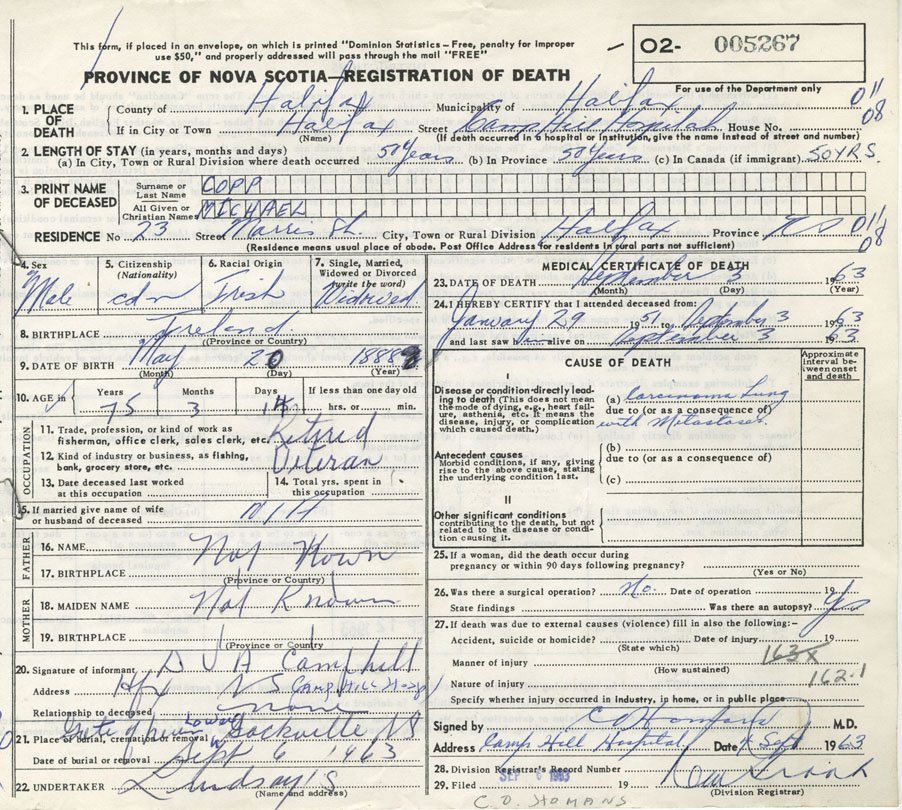 This form, if placed in an envelope, on which is printed "Dominion Statistics – Free, penalty for improper
use $50," and properly addressed will pass through the mail "FREE"
02- 005267
PROVINCE OF NOVA SCOTIA—REGISTRATION OF DEATH
For use of the Department only
1. PLACE OF DEATH
County of Halifax Municipality of Halifax 011
If in City or Town Halifax Street Camp Hill Hospital House No. 08
(Name) (If death occurred in a hospital or institution, give the name instead of street and number)
2. LENGTH OF STAY (in years, months and days)
(a) In City, Town or Rural Division where death occurred 50 Years (b) In Province 50 Years (c) In Canada (if immigrant) 50 YRS.
3. PRINT NAME OF DECEASED
Surname or Last Name COPP
All Given or Christian Names MICHAEL
RESIDENCE No 23 Street Morris St. City, Town or Rural Division Halifax Province N S 011 08
(Residence means usual place of abode. Post Office Address for residents in rural parts not sufficient)
4. Sex
Male
5. Citizenship (Nationality)
cdn
6. Racial Origin
Irish
7. Single, Married, Widowed or Divorced (write the word)
Widowed
8. BIRTHPLACE Ireland
(Province or Country)
9. DATE OF BIRTH May 20 1888
(Month) (Day) (Year)
10. AGE in Years Months Days If less than one day old
75 3 14 hrs. or min.
OCCUPATION
11. Trade, profession, or kind of work as fisherman, office clerk, sales clerk, etc. Retired
12. Kind of industry or business, as fishing, bank, grocery store, etc. Veteran
13. Date deceased last worked at this occupation
14. Total yrs. spent in this occupation
15. If married give name of wife or husband of deceased N/A
FATHER
16. NAME Not Known
17. BIRTHPLACE
(Province or Country)
MOTHER
18. MAIDEN NAME Not Known
19. BIRTHPLACE
(Province or Country)
20. Signature of informant D V A Camp Hill
Address Hfx NS CAMP HILL Hosp
Relationship to deceased none
21. Place of burial, cremation or removal Lower Sackville NS
Date of burial or removal Sept 6 1963
22. UNDERTAKER Lindsay's
(Name and address)
MEDICAL CERTIFICATE OF DEATH
23. DATE OF DEATH September 3 1963
(Month) (Day) (Year)
24. I HEREBY CERTIFY that I attended deceased from:
January 29 1951 to September 3 1963
and last saw him alive on September 3 1963
CAUSE OF DEATH
Approximate interval between onset and death
I
Disease or condition directly leading to death (This does not mean the mode of dying, e.g., heart failure, asthenia, etc. It means the disease, injury, or complication which caused death.)
(a) Carcinoma Lung
due to (or as a consequence of)
with Metastases.
Antecedent causes
Morbid conditions, if any, giving rise to the above cause, stating the underlying condition last.
(b)
due to (or as a consequence of)
(c)
II
Other significant conditions
contributing to the death, but not related to the disease or condition causing it.
25. If a woman, did the death occur during
pregnancy or within 90 days following pregnancy?
(Yes or No)
26. Was there a surgical operation? No. Date of operation 19
State findings Was there an autopsy? Yes
27. If death was due to external causes (violence) fill in also the following:–
Accident, suicide or homicide? Date of injury 19
(State which)
Manner of injury 163X
(How sustained)
Nature of injury 162.1
Specify whether injury occurred in Industry, in home, or in public place
Signed by C D Homans M.D.
Address Camp Hill Hospital Date Sept 1963
28. Division Registrar's Record Number
SEP 6 1963
29. Filed 19
(Division Registrar)
C. D. HOMANS